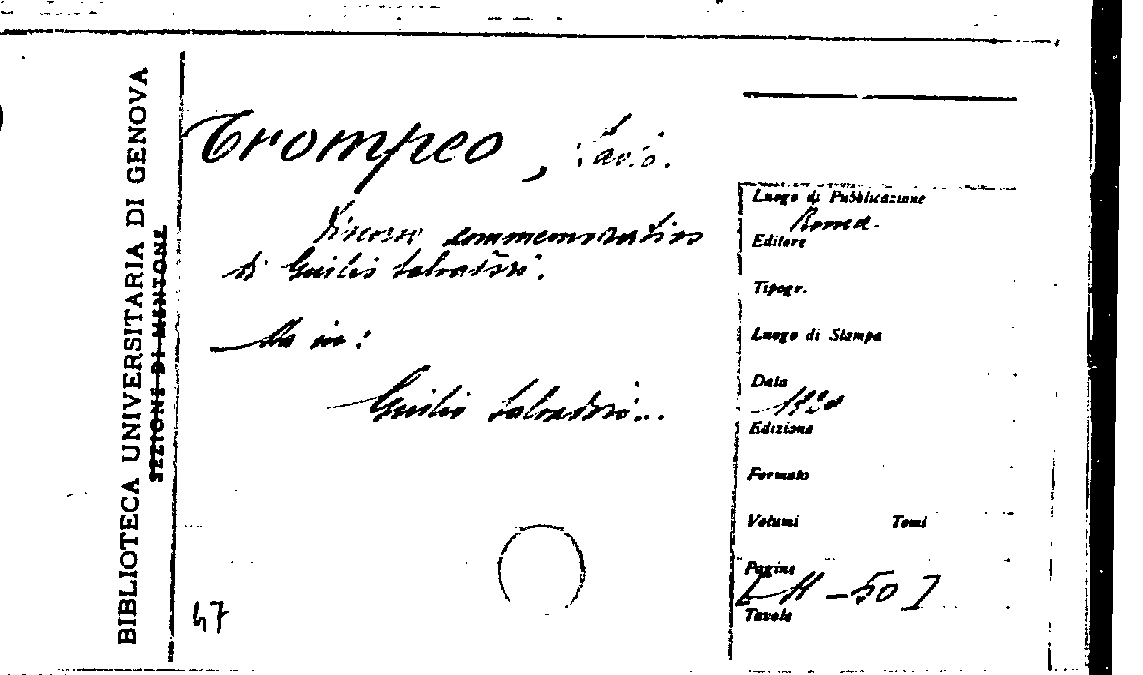 BIBLIOTECA UNIVERSITARIA DI GENOVA
SEZIONI DI MENTONE
Trompeo,
Discorso commemorativo
di Giulio Salvadori.
Giulio Salvadori..
47
Luogo di Pubblicazione
Roma.
Editore
Tipogr.
Luogo di Stampa
Data
Edizione
Formato
Volumi Tomi
Pagine
[11-50]
Tavole